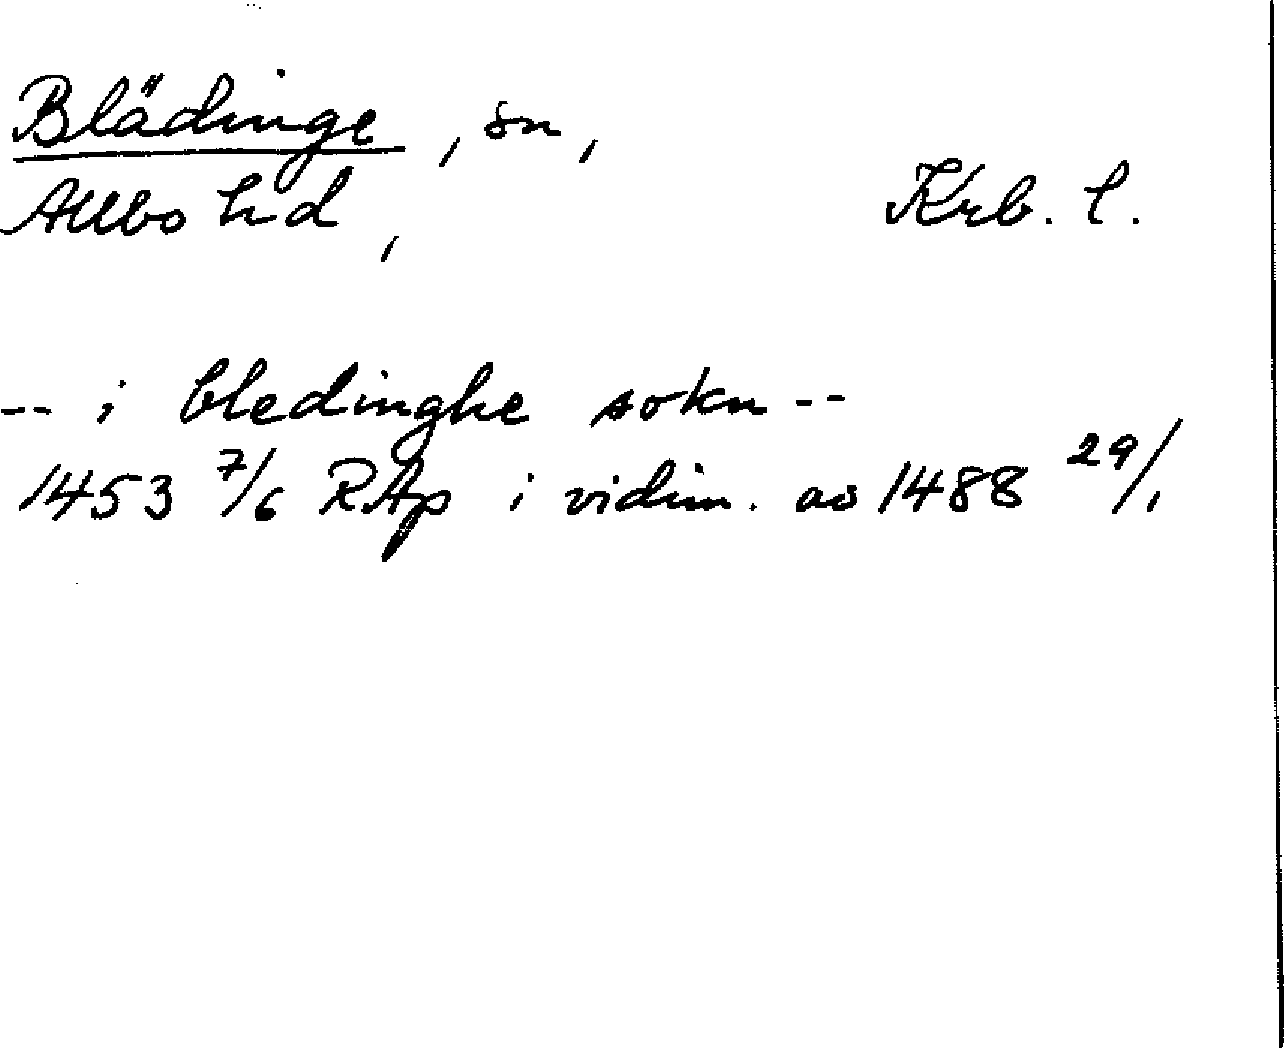 Blädinge, sn,
Allbo hd, Krb. l.
-- i bledinghe sokn --
1453 7/6 RAp i vidim. av 1488 29/1